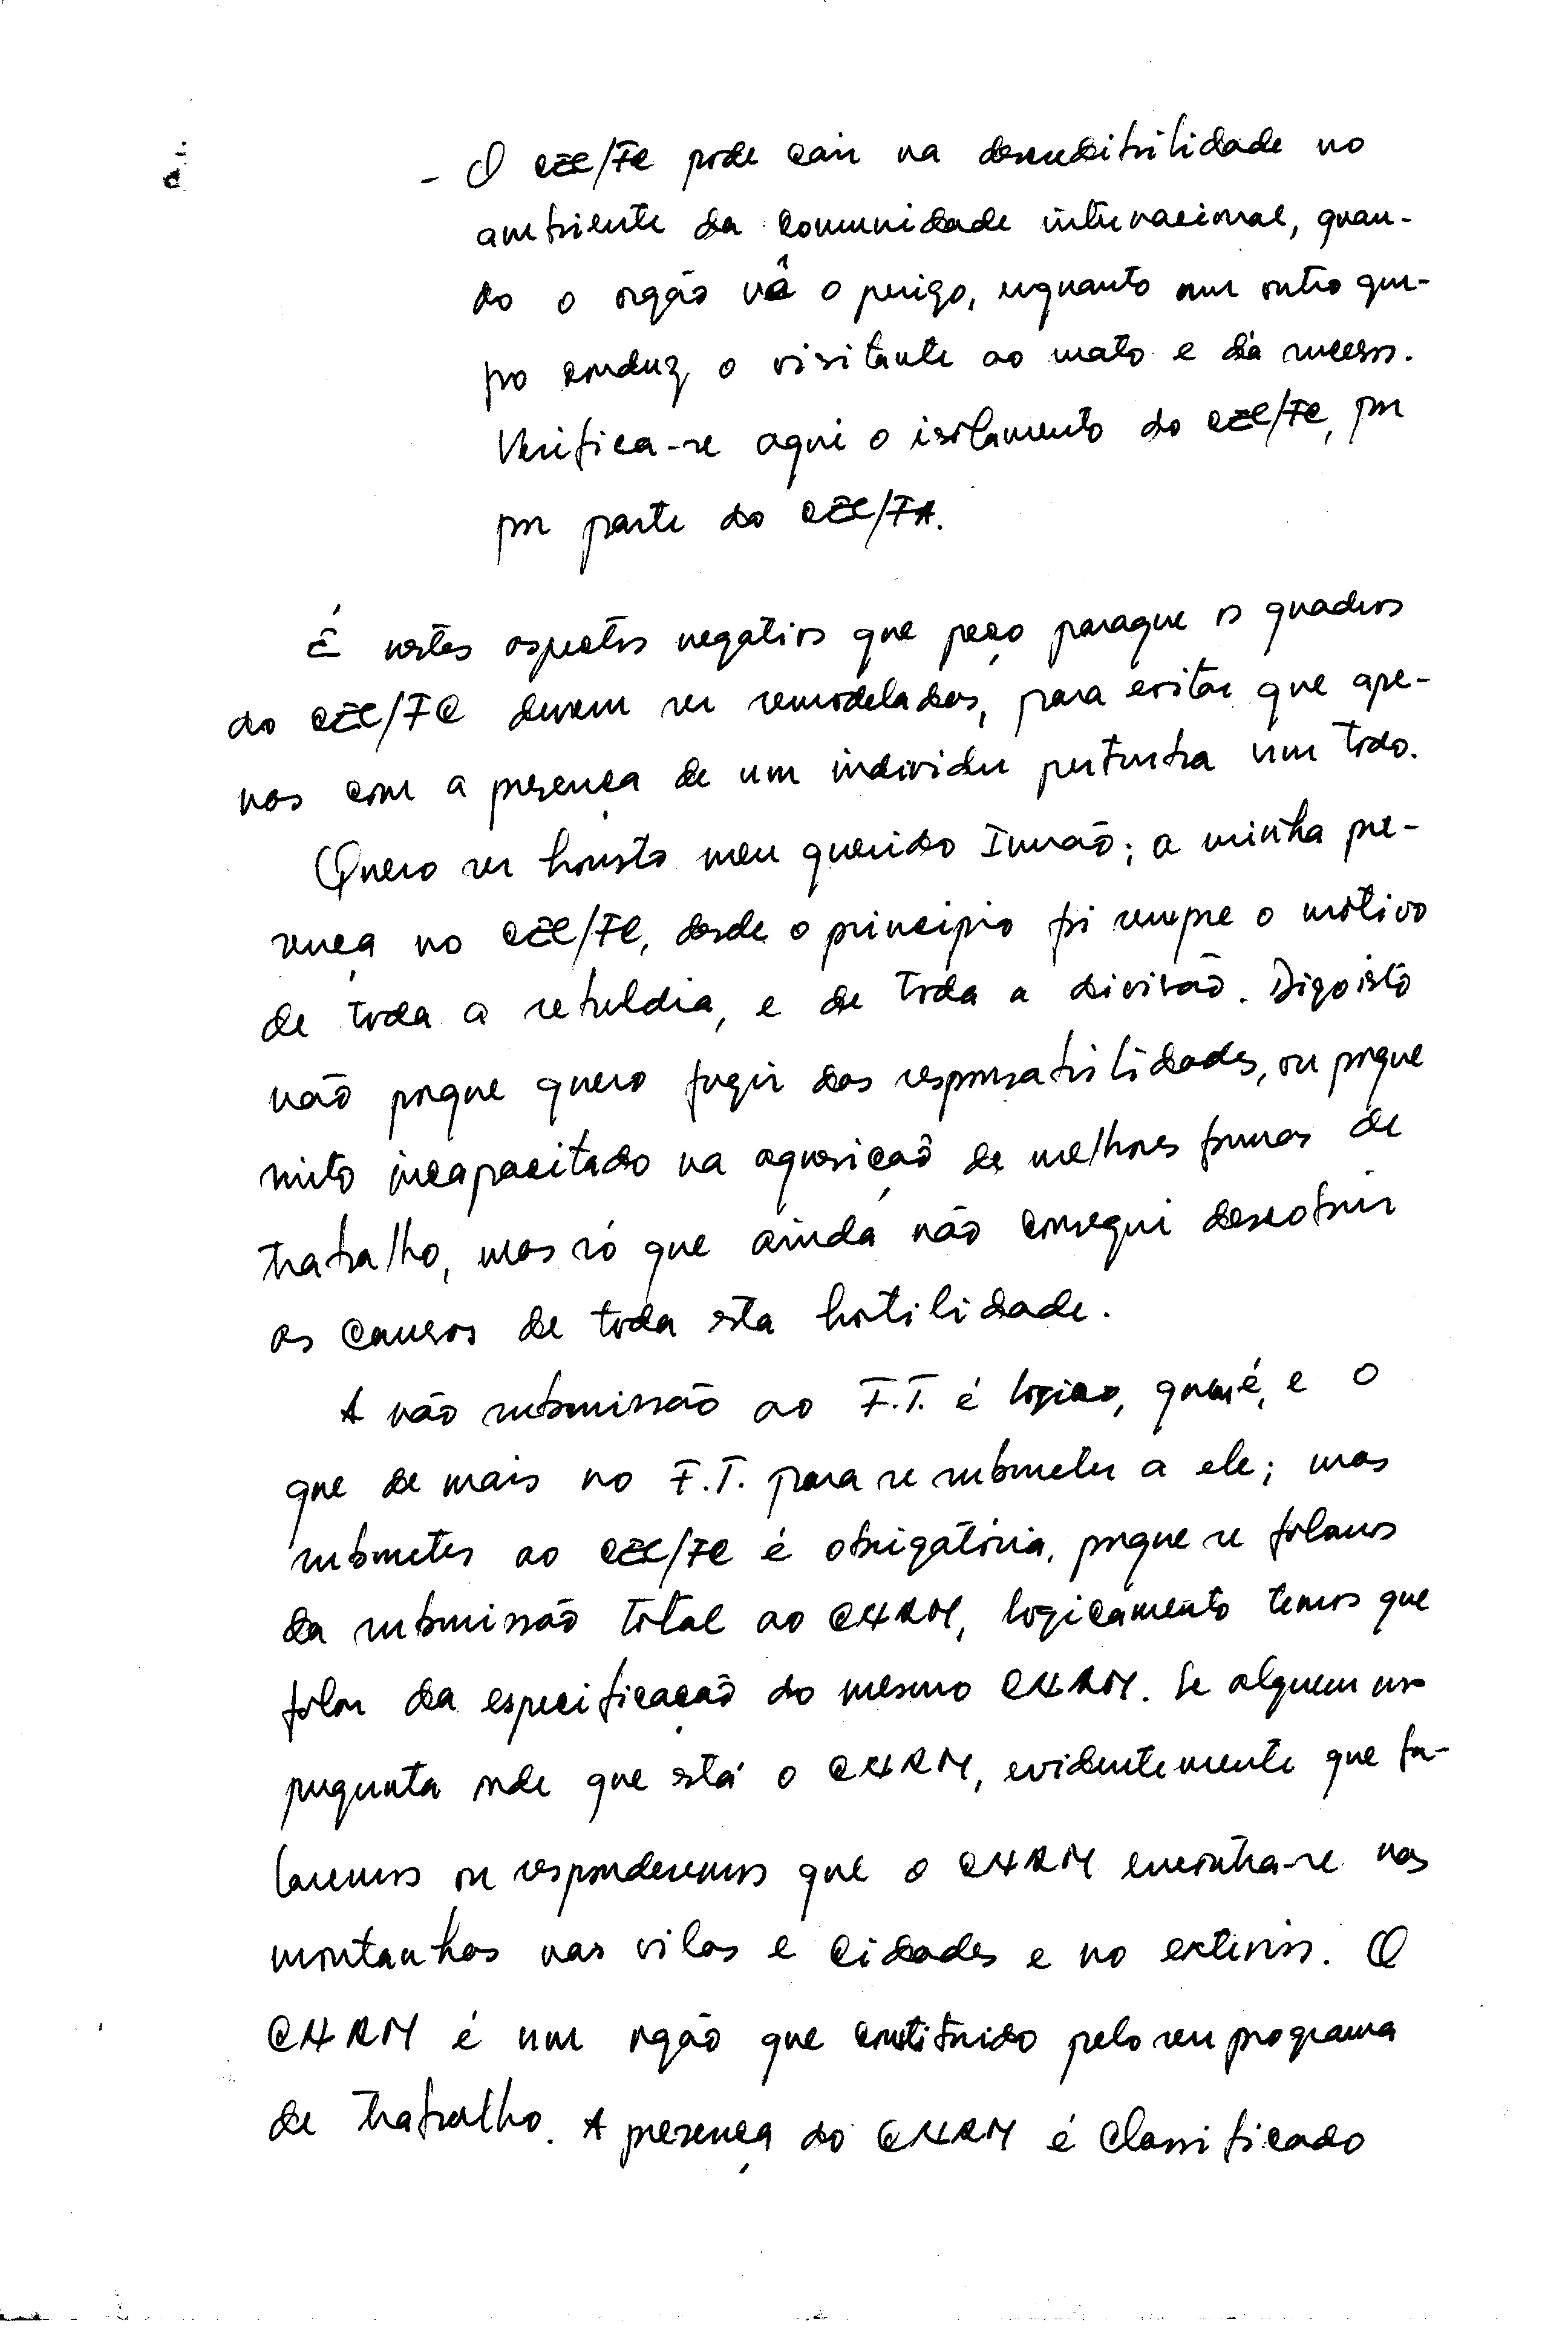 - O CEL/FC pode cair na descredibilidade no
ambiente da comunidade internacional, quan-
do o orgão vê o perigo, enquanto num outro gru-
po conduz o visitante ao mato e dá sucesso.
Verifica-se aqui o isolamento do CEL/FC, por
por parte do CEL/FA.
É nestes aspectos negativos que peço paraque os quadros
do CEL/FC devem ser remodelados, para evitar que ape-
nas com a presença de um individuo perturba um todo.
Quero ser honesto meu querido Irmão; a minha pre-
sença no CEL/FC, desde o principio foi sempre o motivo
de toda a rebeldia, e de toda a divisão. Digo isto
não porque quero fugir das responsabilidades, ou porque
sinto incapacitado na aquesição de melhores formas de
trabalho, mas só que ainda não consegui descobrir
as causas de toda esta hostilidade.
A não submissão ao F.T. é logico, quem é, e o
que de mais no F.T. para se submeter a ele; mas
submeter ao CEL/FC é obrigatória, porque se falamos
da submissão total ao CNRM, logicamento temos que
falar da especificação do mesmo CNRM. Se alguem nos
pregunta onde que está o CNRM, evidentemente que fa-
laremos ou responderemos que o CNRM encontra-se nas
montanhas nas vilas e cidades e no exterior. O
CNRM é um orgão que constituido pelo seu programa
de trabalho. A presença do CNRM é classificado